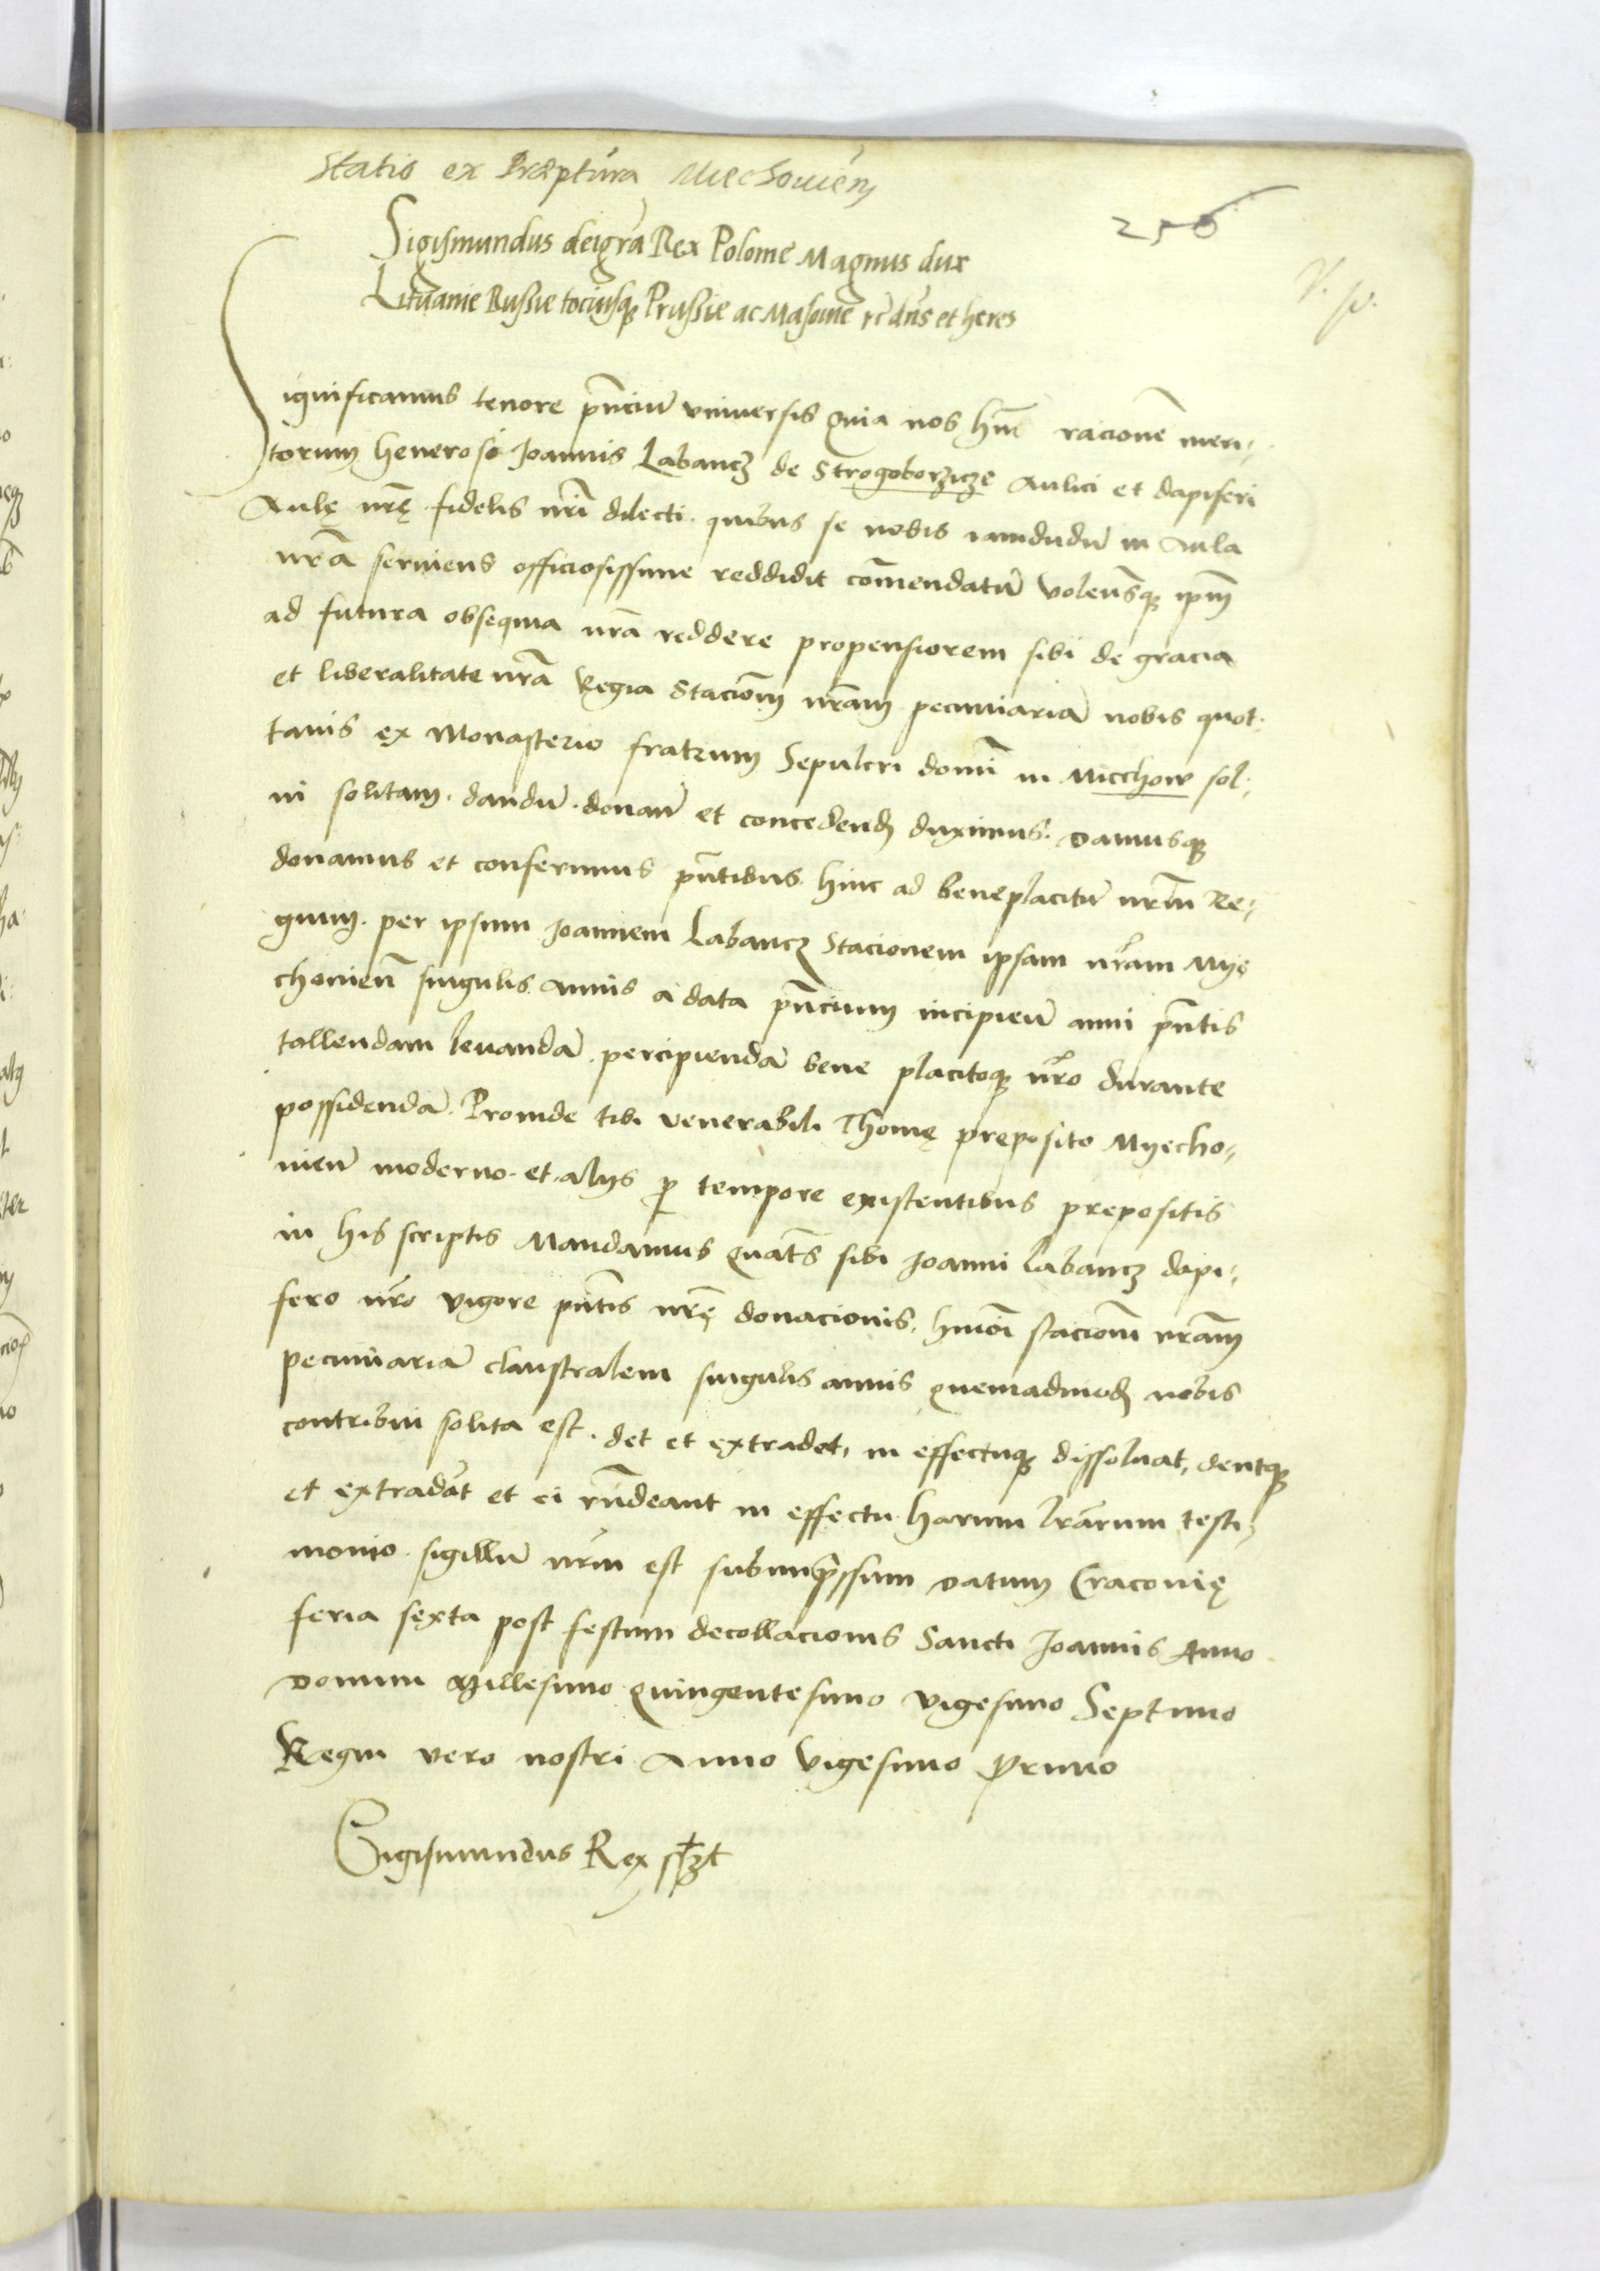 Statio ex Præptura Miechovien
256
Sigismundus dei gra Rex Polonie Magnus dux
Lituanie Russie tociusq Prussie ac Masouie etc dns et heres
Significamus tenore pntium vniuersis Quia nos hntes racionem meri-
torum Generosi Joannis Labancz de Strogoborzicze Aulici et dapiferi
Aulę nrę fidelis nri dilecti quibus se nobis iamdudu in Aula
nra seruiens officiosissime reddidit comendatu volensq ipm
ad futura obsequia nra reddere propensiorem sibi de gracia
et liberalitate nra Regia Stacionem nram pecuniaria nobis quot
tanis ex Monasterio fratrum Sepulcri domi in Miechow sol-
ui solitam dandu donan et concedend duximus Damusq
donamus et conferimus pntibus hinc ad beneplacitu nrm Re-
gium per ipsum Joannem Labancz Stacionem ipsam nram Myę
chouien singulis annis a data pntium incipien anni pntis
tollendam leuanda percipienda bene placitoq nro durante
possidenda Proinde tibi venerabili Thomę preposito Myecho-
uien moderno et alys p tempore existentibus prepositis
in his scriptis Mandamus Quats sibi Joanni Labancz dapi-
fero nro vigore pntis nrę donacionis hmoi stacionem nram
pecuniaria claustralem singulis annis quemadmod nobis
contribui solita est det et extradet in effectuq dissoluat dentq
et extradat et ei rndeant in effectu harum lrarum testi-
monio sigillu nrm est subimpressum Datum Cracouię
feria sexta post festum decollacionis Sancti Joannis Anno
Domini Millesimo quingentesimo vigesimo Septimo
Regni vero nostri Anno Vigesimo Primo
Sigismundus Rex sszt